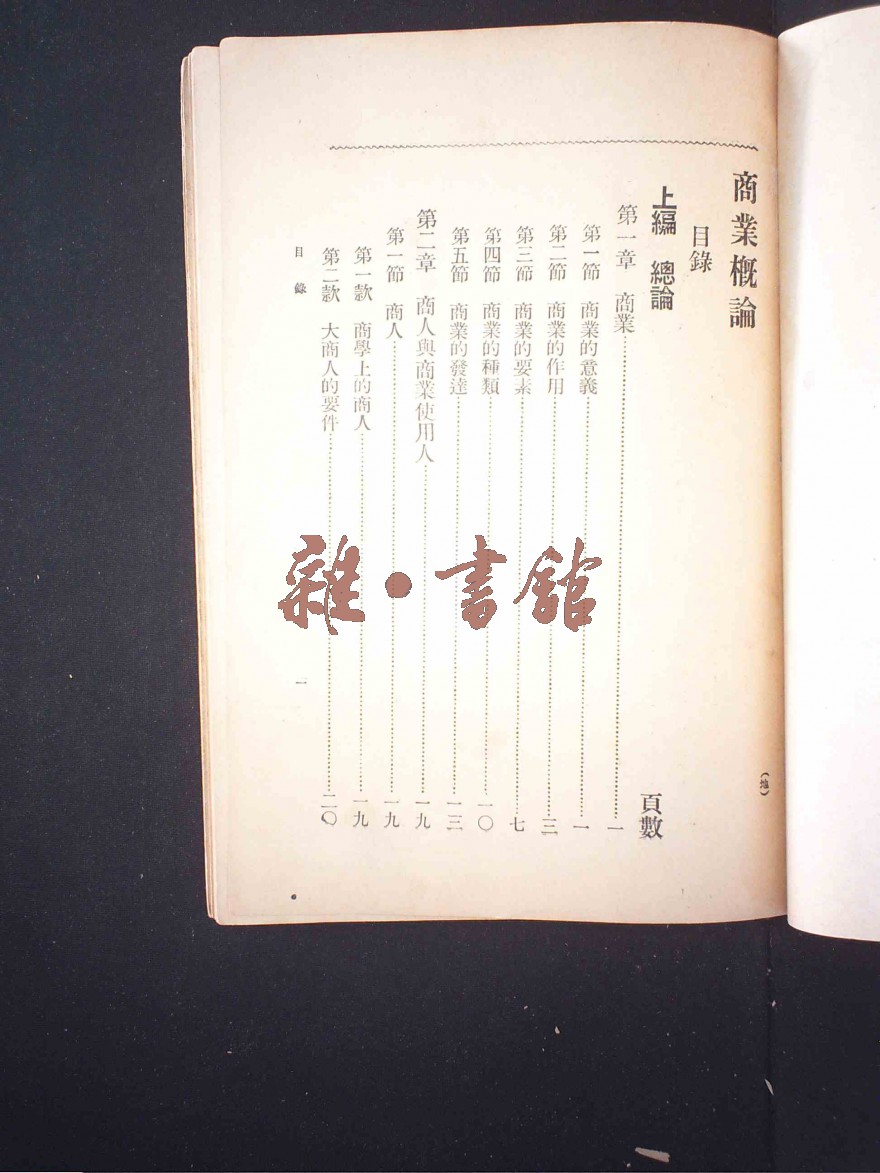 商業概論
目錄
頁數
上編 總論
第一章 商業……一
第一節 商業的意義……一
第二節 商業的作用……三
第三節 商業的要素……七
第四節 商業的種類……一〇
第五節 商業的發達……一三
第二章 商人與商業使用人……一九
第一節 商人……一九
第一款 商學上的商人……一九
第二款 大商人的要件……二〇
目錄
一
(地)
雜·書館